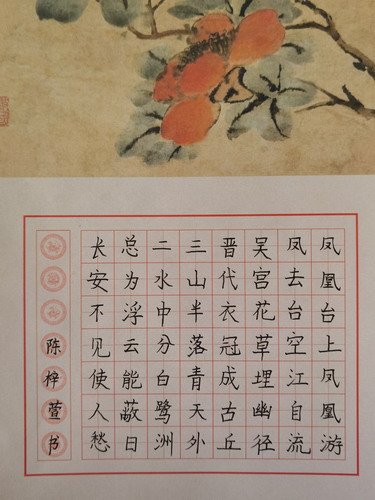 凤凰台上凤凰游
凤去台空江自流
吴宫花草埋幽径
晋代衣冠成古丘
三山半落青天外
二水中分白鹭洲
总为浮云能蔽日
长安不见使人愁
陈梓萱书